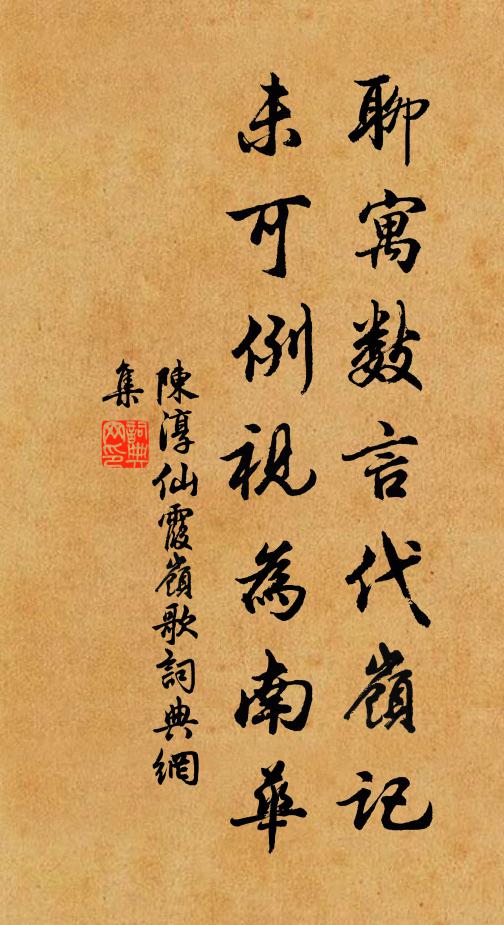 聊寓數言代嶺記
未可例視為南華
陳淳仙霞嶺歌詞典網
集
詞典網印